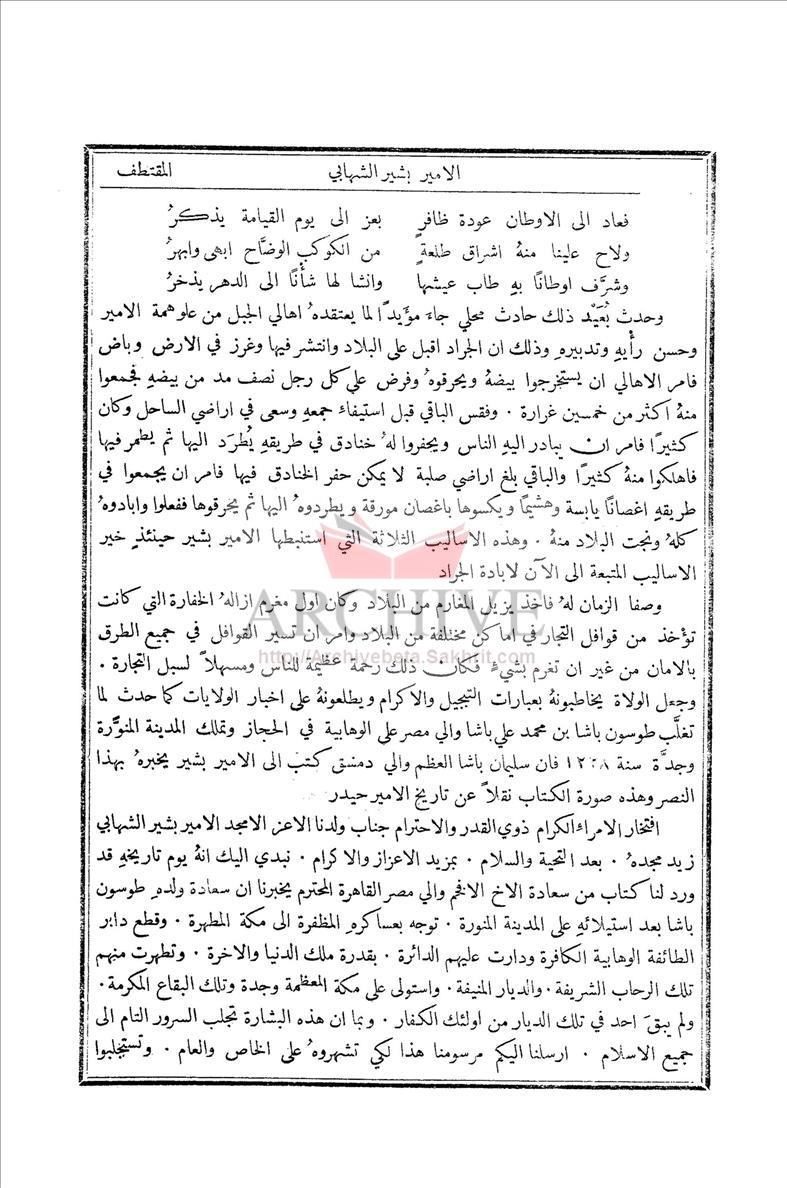 الامير بشير الشهابي المقتطف
فعاد الى الاوطان عودة ظافرٍ بعز الى يوم القيامة يذكرُ
ولاح علينا منهُ اشراق طلعةٍ من الكوكب الوضَّاح ابهى وابهرُ
وشرَّف اوطانًا بهِ طاب عيشها وانشا لها شأنًا الى الدهر يذخرُ
وحدث بُعَيْد ذلك حادث محلي جاءَ مؤيدًا لما يعتقدهُ اهالي الجبل من علو همة الامير
وحسن رأيهِ وتدبيرهِ وذلك ان الجراد اقبل على البلاد وانتشر فيها وغرز في الارض وباض
فامر الاهالي ان يستخرجوا بيضهُ ويحرقوهُ وفرض على كل رجل نصف مد من بيضهِ فجمعوا
منهُ اكثر من خمسين غرارة . وفقس الباقي قبل استيفاءِ جمعهِ وسعى في اراضي الساحل وكان
كثيرًا فامر ان يبادر اليهِ الناس ويحفروا لهُ خنادق في طريقهِ يُطرَد اليها ثم يطمر فيها
فاهلكوا منهُ كثيرًا والباقي بلغ اراضي صلبة لا يمكن حفر الخنادق فيها فامر ان يجمعوا في
طريقهِ اغصانًا يابسة وهشيمًا ويكسوها باغصان مورقة ويطردوهُ اليها ثم يحرقوها ففعلوا وابادوهُ
كلهُ ونجت البلاد منهُ . وهذه الاساليب الثلاثة التي استنبطها الامير بشير حينئذٍ خير
الاساليب المتبعة الى الآن لابادة الجراد
وصفا الزمان لهُ فاخذ يزيل المغارم من البلاد وكان اول مغرم ازالهُ الخفارة التي كانت
تؤخذ من قوافل التجار في اماكن مختلفة من البلاد وامر ان تسير القوافل في جميع الطرق
بالامان من غير ان تغرم بشيءٍ فكان ذلك رحمة عظيمة للناس ومسهلاً لسبل التجارة .
وجعل الولاة يخاطبونهُ بعبارات التبجيل والاكرام ويطلعونهُ على اخبار الولايات كما حدث لما
تغلَّب طوسون باشا بن محمد علي باشا والي مصر على الوهابية في الحجاز وتملك المدينة المنوَّرة
وجدَّة سنة ١٢٢٨ فان سليمان باشا العظم والي دمشق كتب الى الامير بشير يخبرهُ بهذا
النصر وهذه صورة الكتاب نقلاً عن تاريخ الامير حيدر
افتخار الامراء الكرام ذوي القدر والاحترام جناب ولدنا الاعز الامجد الامير بشير الشهابي
زيد مجدهُ . بعد التحية والسلام . بمزيد الاعزاز والاكرام . نبدي اليك انهُ يوم تاريخهِ قد
ورد لنا كتاب من سعادة الاخ الافخم والي مصر القاهرة المحترم يخبرنا ان سعادة ولدهِ طوسون
باشا بعد استيلائهِ على المدينة المنورة . توجه بعساكرهِ المظفرة الى مكة المطهرة . وقطع دابر
الطائفة الوهابية الكافرة ودارت عليهم الدائرة . بقدرة ملك الدنيا والاخرة . وتطهرت منهم
تلك الرحاب الشريفة . والديار المنيفة . واستولى على مكة المعظمة وجدة وتلك البقاع المكرمة .
ولم يبقَ احد في تلك الديار من اولئك الكفار . وبما ان هذه البشارة تجلب السرور التام الى
جميع الاسلام . ارسلنا اليكم مرسومنا هذا لكي تشهروهُ على الخاص والعام . وتستجلبوا
ARCHIVE
http://Archivebeta.Sakhrit.com